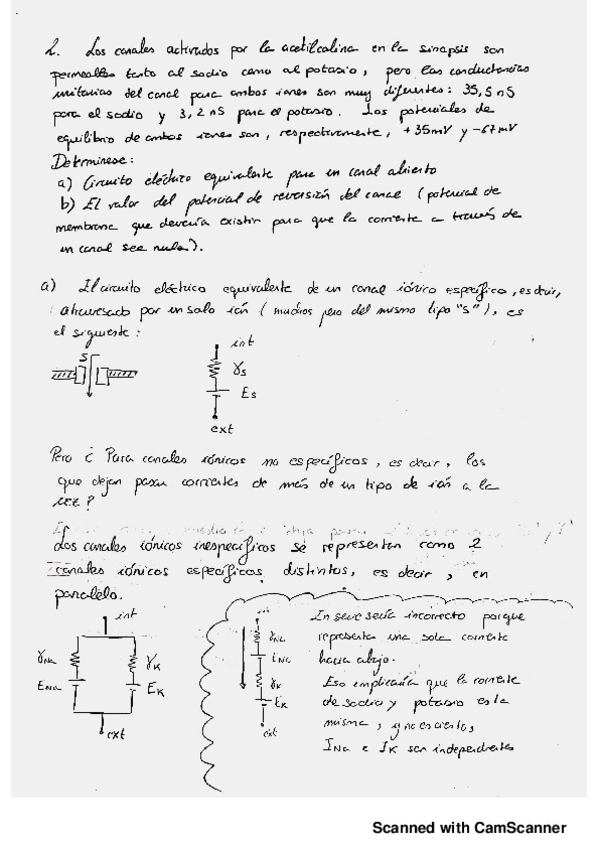 2. Los canales activados por la acetilcolina en la sinapsis son
permeables tanto al sodio como al potasio, pero las conductancias
unitarias del canal para ambos iones son muy diferentes: 35,5 nS
para el sodio y 3,2 nS para el potasio. Los potenciales de
equilibrio de ambos iones son, respectivamente, +35mV y -67mV
Determínese:
a) Circuito eléctrico equivalente para un canal abierto
b) El valor del potencial de reversión del canal (potencial de
membrana que debería existir para que la corriente a través de
un canal sea nula).
a) El circuito eléctrico equivalente de un canal iónico específico, es decir,
atravesado por un solo ión (muchos pero del mismo tipo "s"), es
el siguiente:
S
int
γs
Es
ext
Pero ¿ Para canales iónicos no específicos, es decir, los
que dejan pasar corrientes de más de un tipo de ión a la
vez?
Los canales iónicos inespecíficos se representan como 2
canales iónicos específicos distintos, es decir, en
paralelo.
int
γNa
γK
ENa
EK
ext
int
γNa
ENa
γK
EK
ext
In serie sería incorrecto porque
representa una sola corriente
hacia abajo.
Eso implicaría que la corriente
de sodio y potasio es la
misma, y no es cierto,
INa e IK son independientes
Scanned with CamScanner